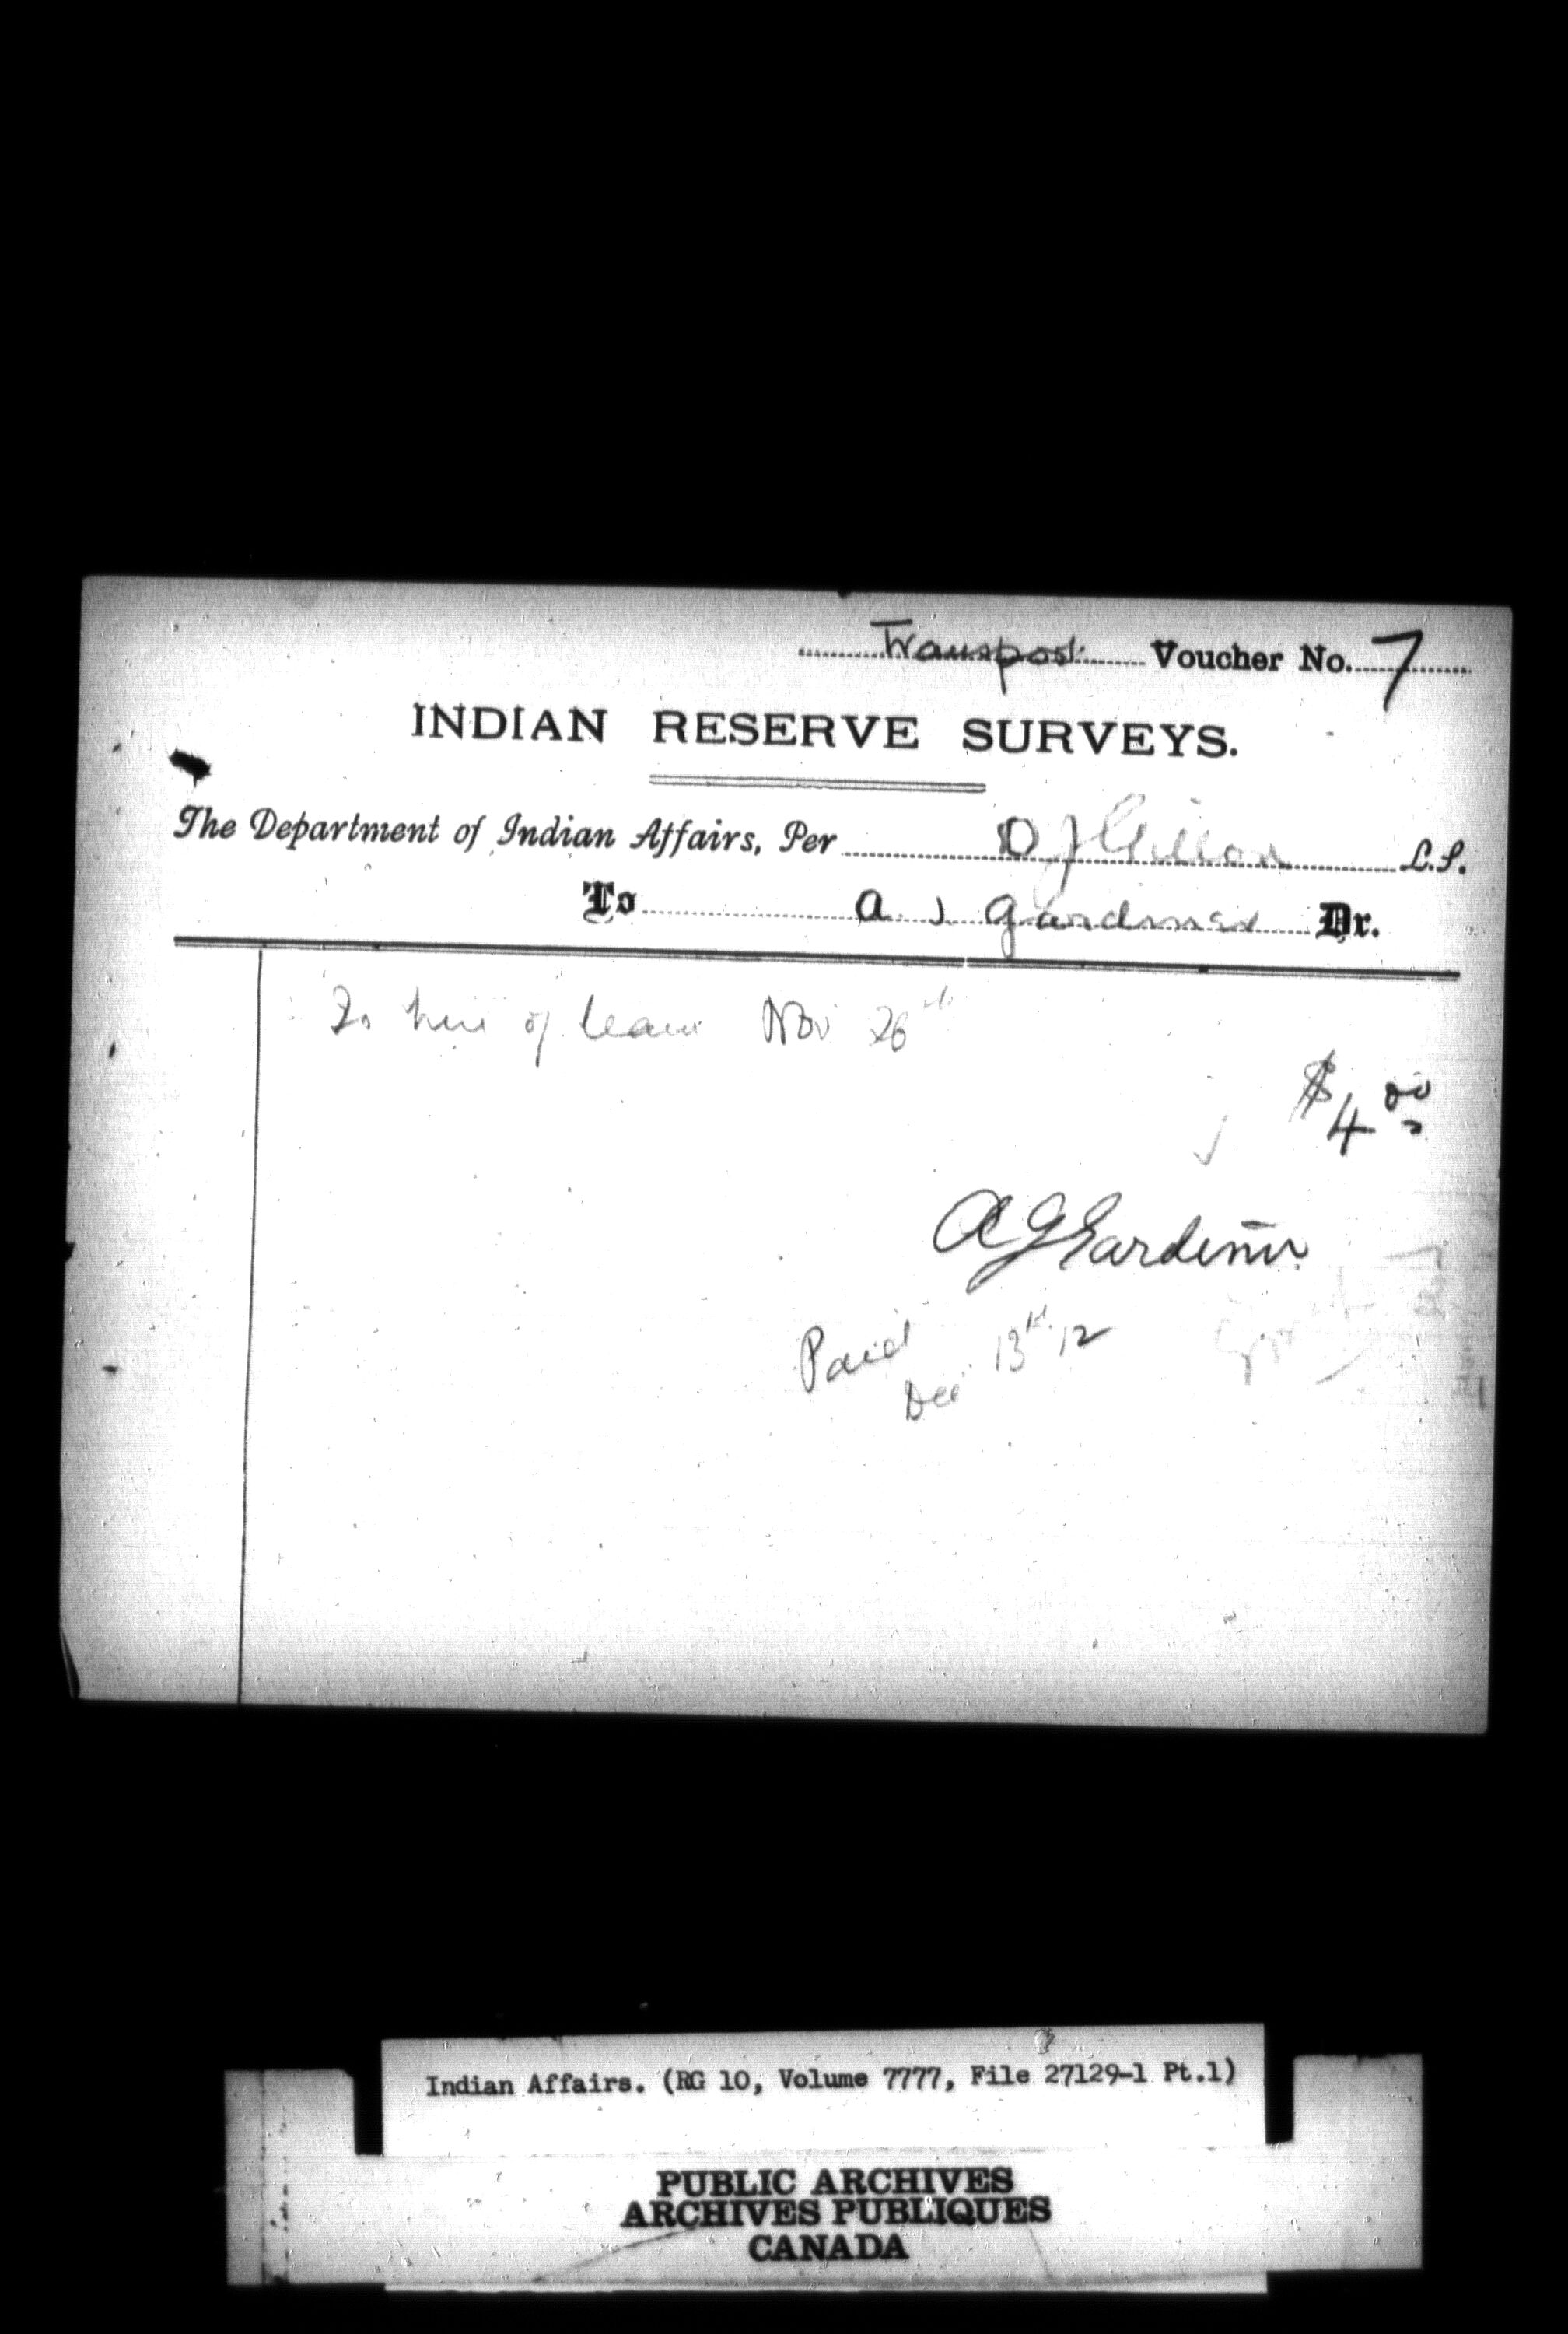 Transport Voucher No. 7
INDIAN RESERVE SURVEYS.
The Department of Indian Affairs, Per D J Gillon L.S.
To A. J Gardiner Dr.
To hire of team Nov 26th
$4 00
A J Gardiner
Paid
Dec 13th 12
Indian Affairs. (RG 10, Volume 7777, File 27129-1 Pt.1)
PUBLIC ARCHIVES
ARCHIVES PUBLIQUES
CANADA